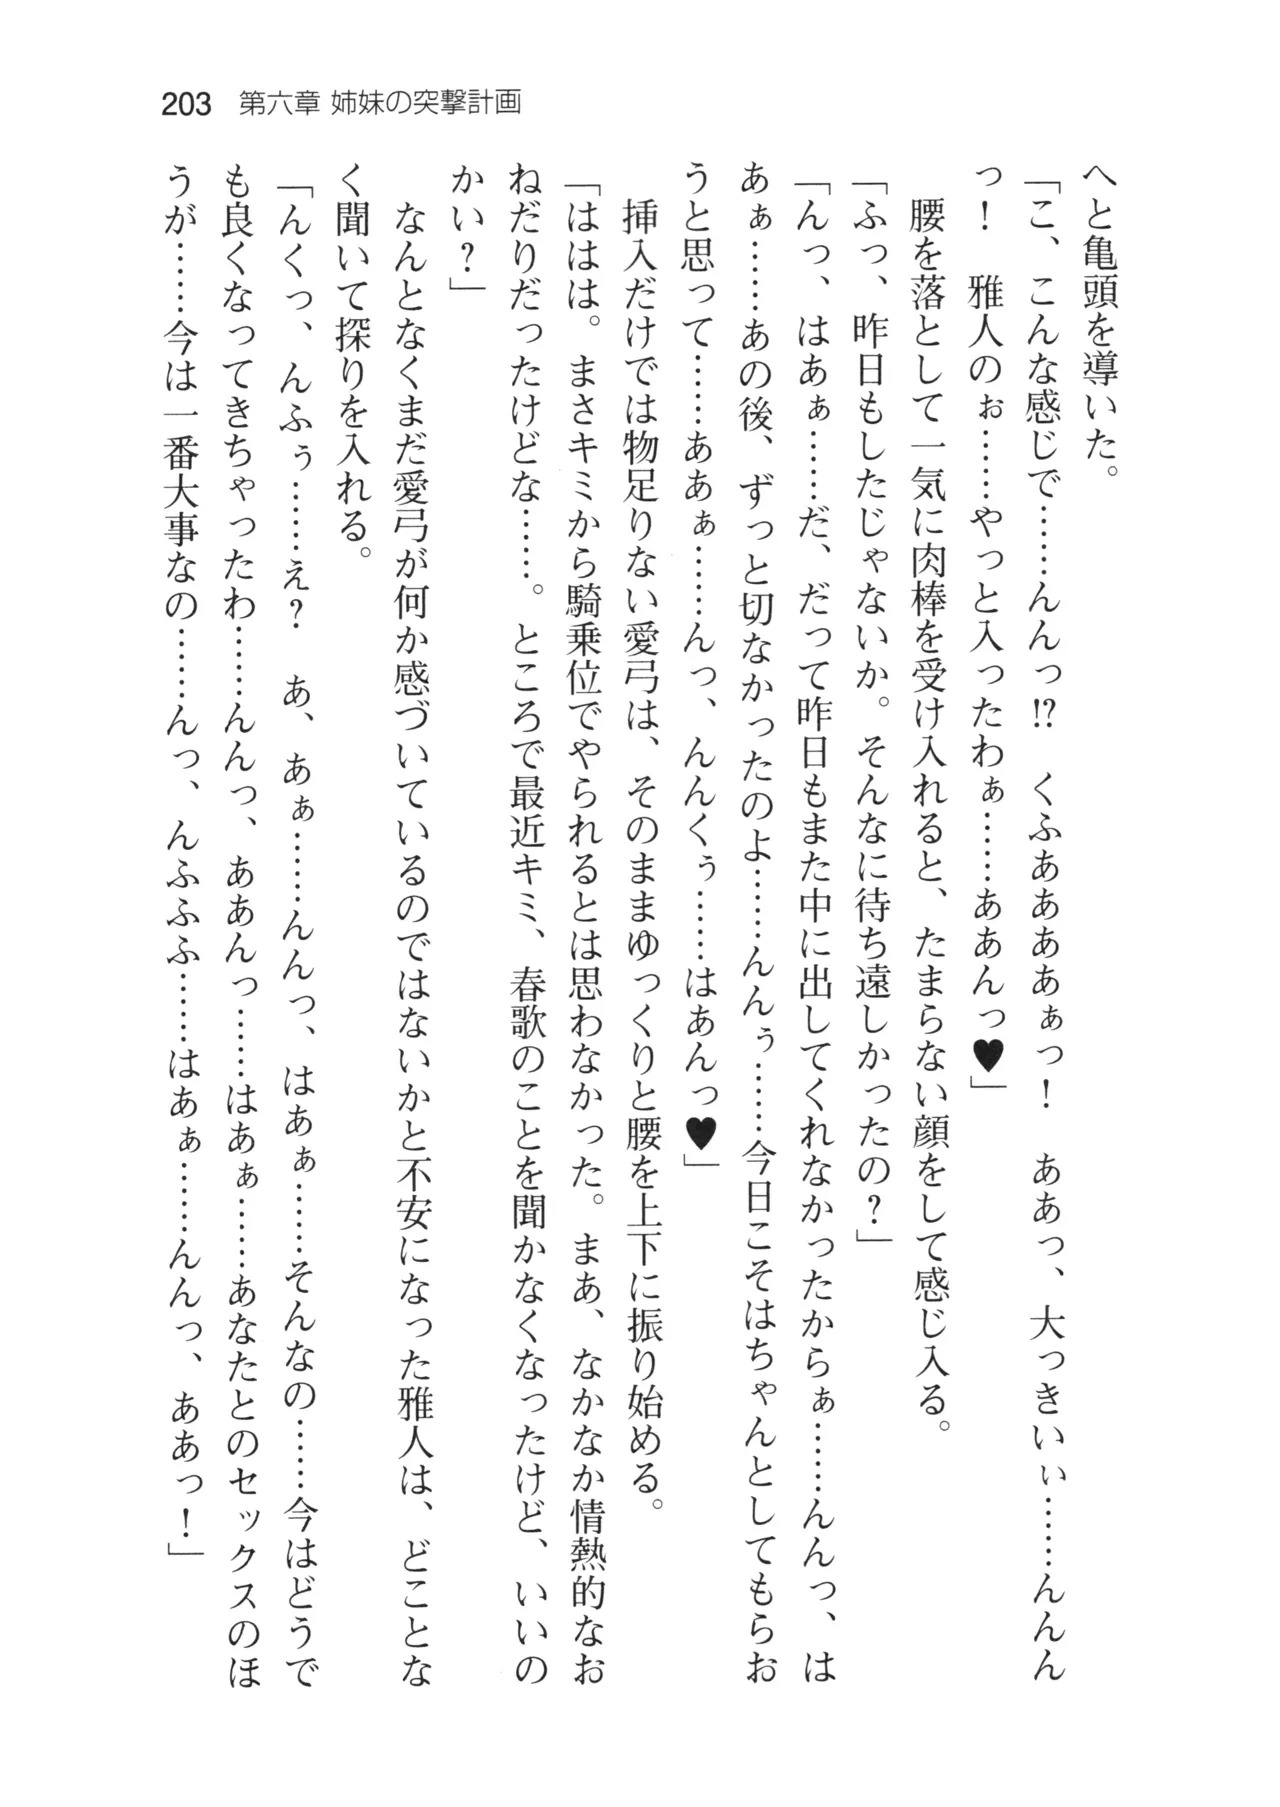 203 第六章 姉妹の突撃計画
へと亀頭を導いた。
「こ、こんな感じで……んんっ!? くふああああぁっ！ ああっ、大っきいぃ……んんん
っ！ 雅人のぉ……やっと入ったわぁ……ああんっ♥」
腰を落として一気に肉棒を受け入れると、たまらない顔をして感じ入る。
「ふっ、昨日もしたじゃないか。そんなに待ち遠しかったの？」
「んっ、はあぁ……だ、だって昨日もまた中に出してくれなかったからぁ……んんっ、は
あぁ……あの後、ずっと切なかったのよ……んんぅ……今日こそはちゃんとしてもらお
うと思って……ああぁ……んっ、んんくぅ……はあんっ♥」
挿入だけでは物足りない愛弓は、そのままゆっくりと腰を上下に振り始める。
「ははは。まさキミから騎乗位でやられるとは思わなかった。まあ、なかなか情熱的なお
ねだりだったけどな……。ところで最近キミ、春歌のことを聞かなくなったけど、いいの
かい？」
なんとなくまだ愛弓が何か感づいているのではないかと不安になった雅人は、どことな
く聞いて探りを入れる。
「んくっ、んふぅ……え？ あ、あぁ……んんっ、はあぁ……そんなの……今はどうで
も良くなってきちゃったわ……んんっ、ああんっ……はあぁ……あなたとのセックスのほ
うが……今は一番大事なの……んっ、んふふふ……はあぁ……んんっ、ああっ！」